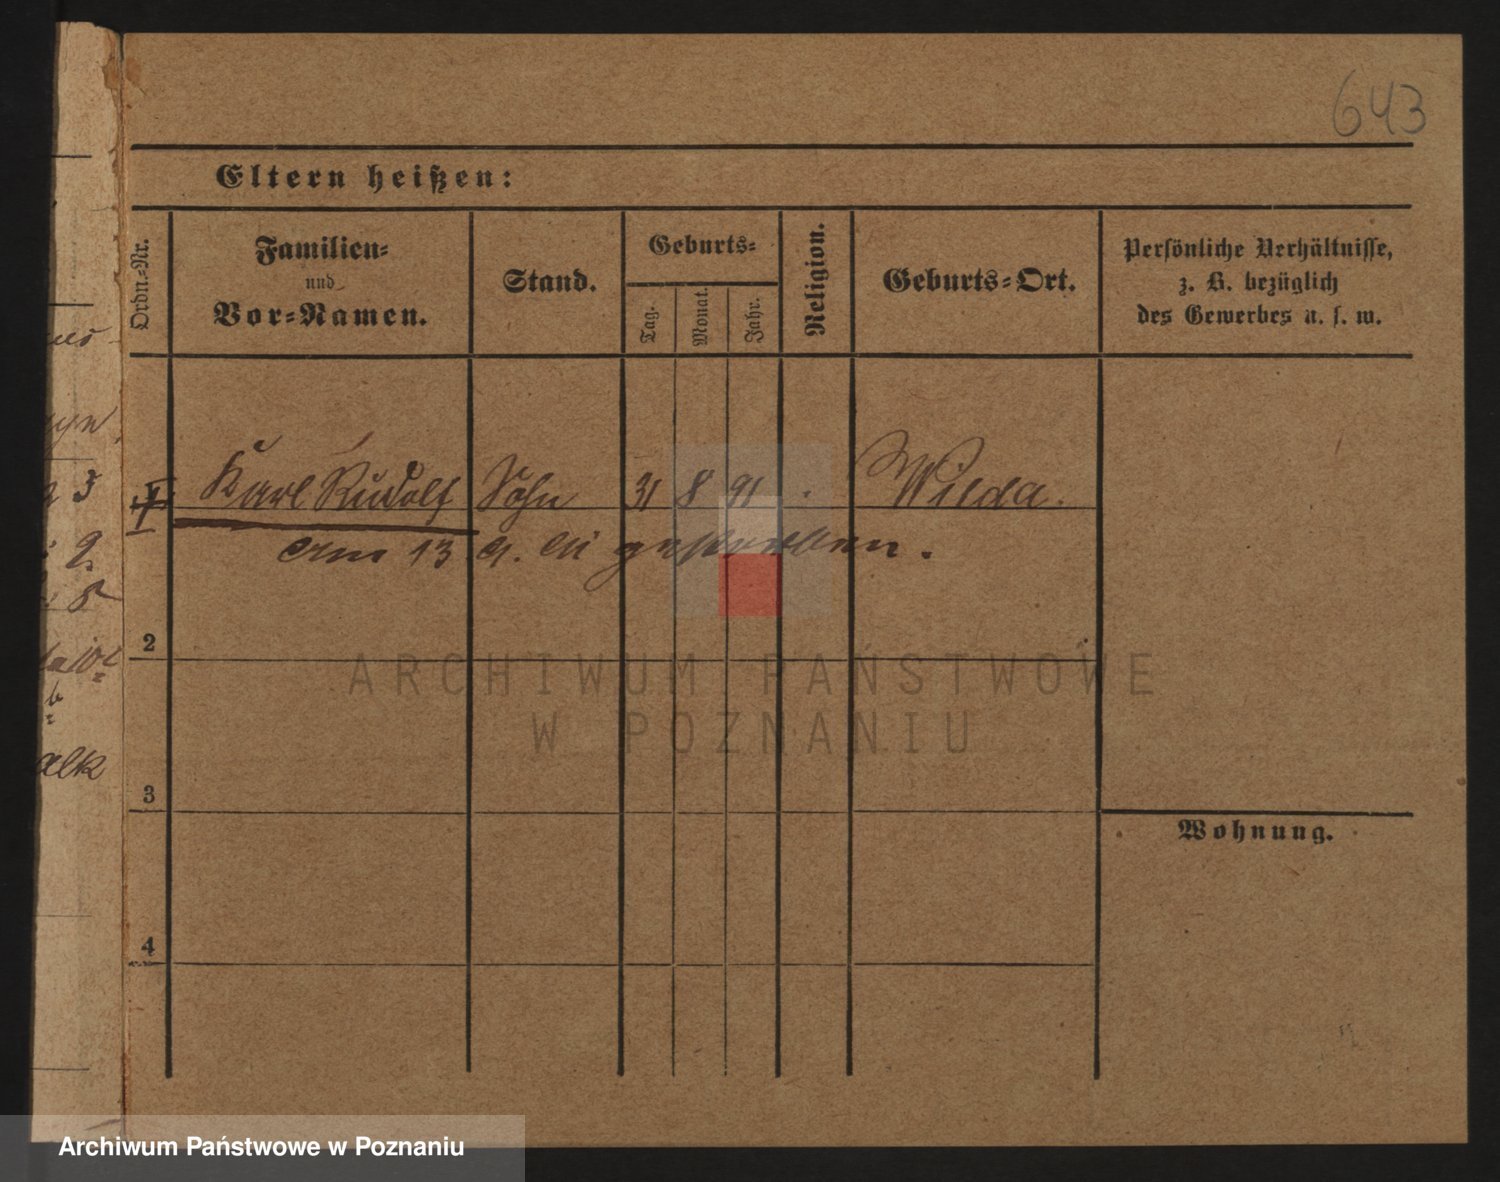 643
Eltern heißen:
Ordn.=Nr.
Familien=
und
Vor=Namen.
Stand.
Geburts=
Tag.
Monat.
Jahr.
Religion.
Geburts=Ort.
Persönliche Verhältnisse,
z. B. bezüglich
des Gewerbes u. s. w.
Karl Rudolf Sohn 31 8 91 . Wilda.
am 13 9. 91 gestorben.
2
3
4
Wohnung.
3
2
5
alk
ARCHIWUM PAŃSTWOWE
W POZNANIU
Archiwum Państwowe w Poznaniu